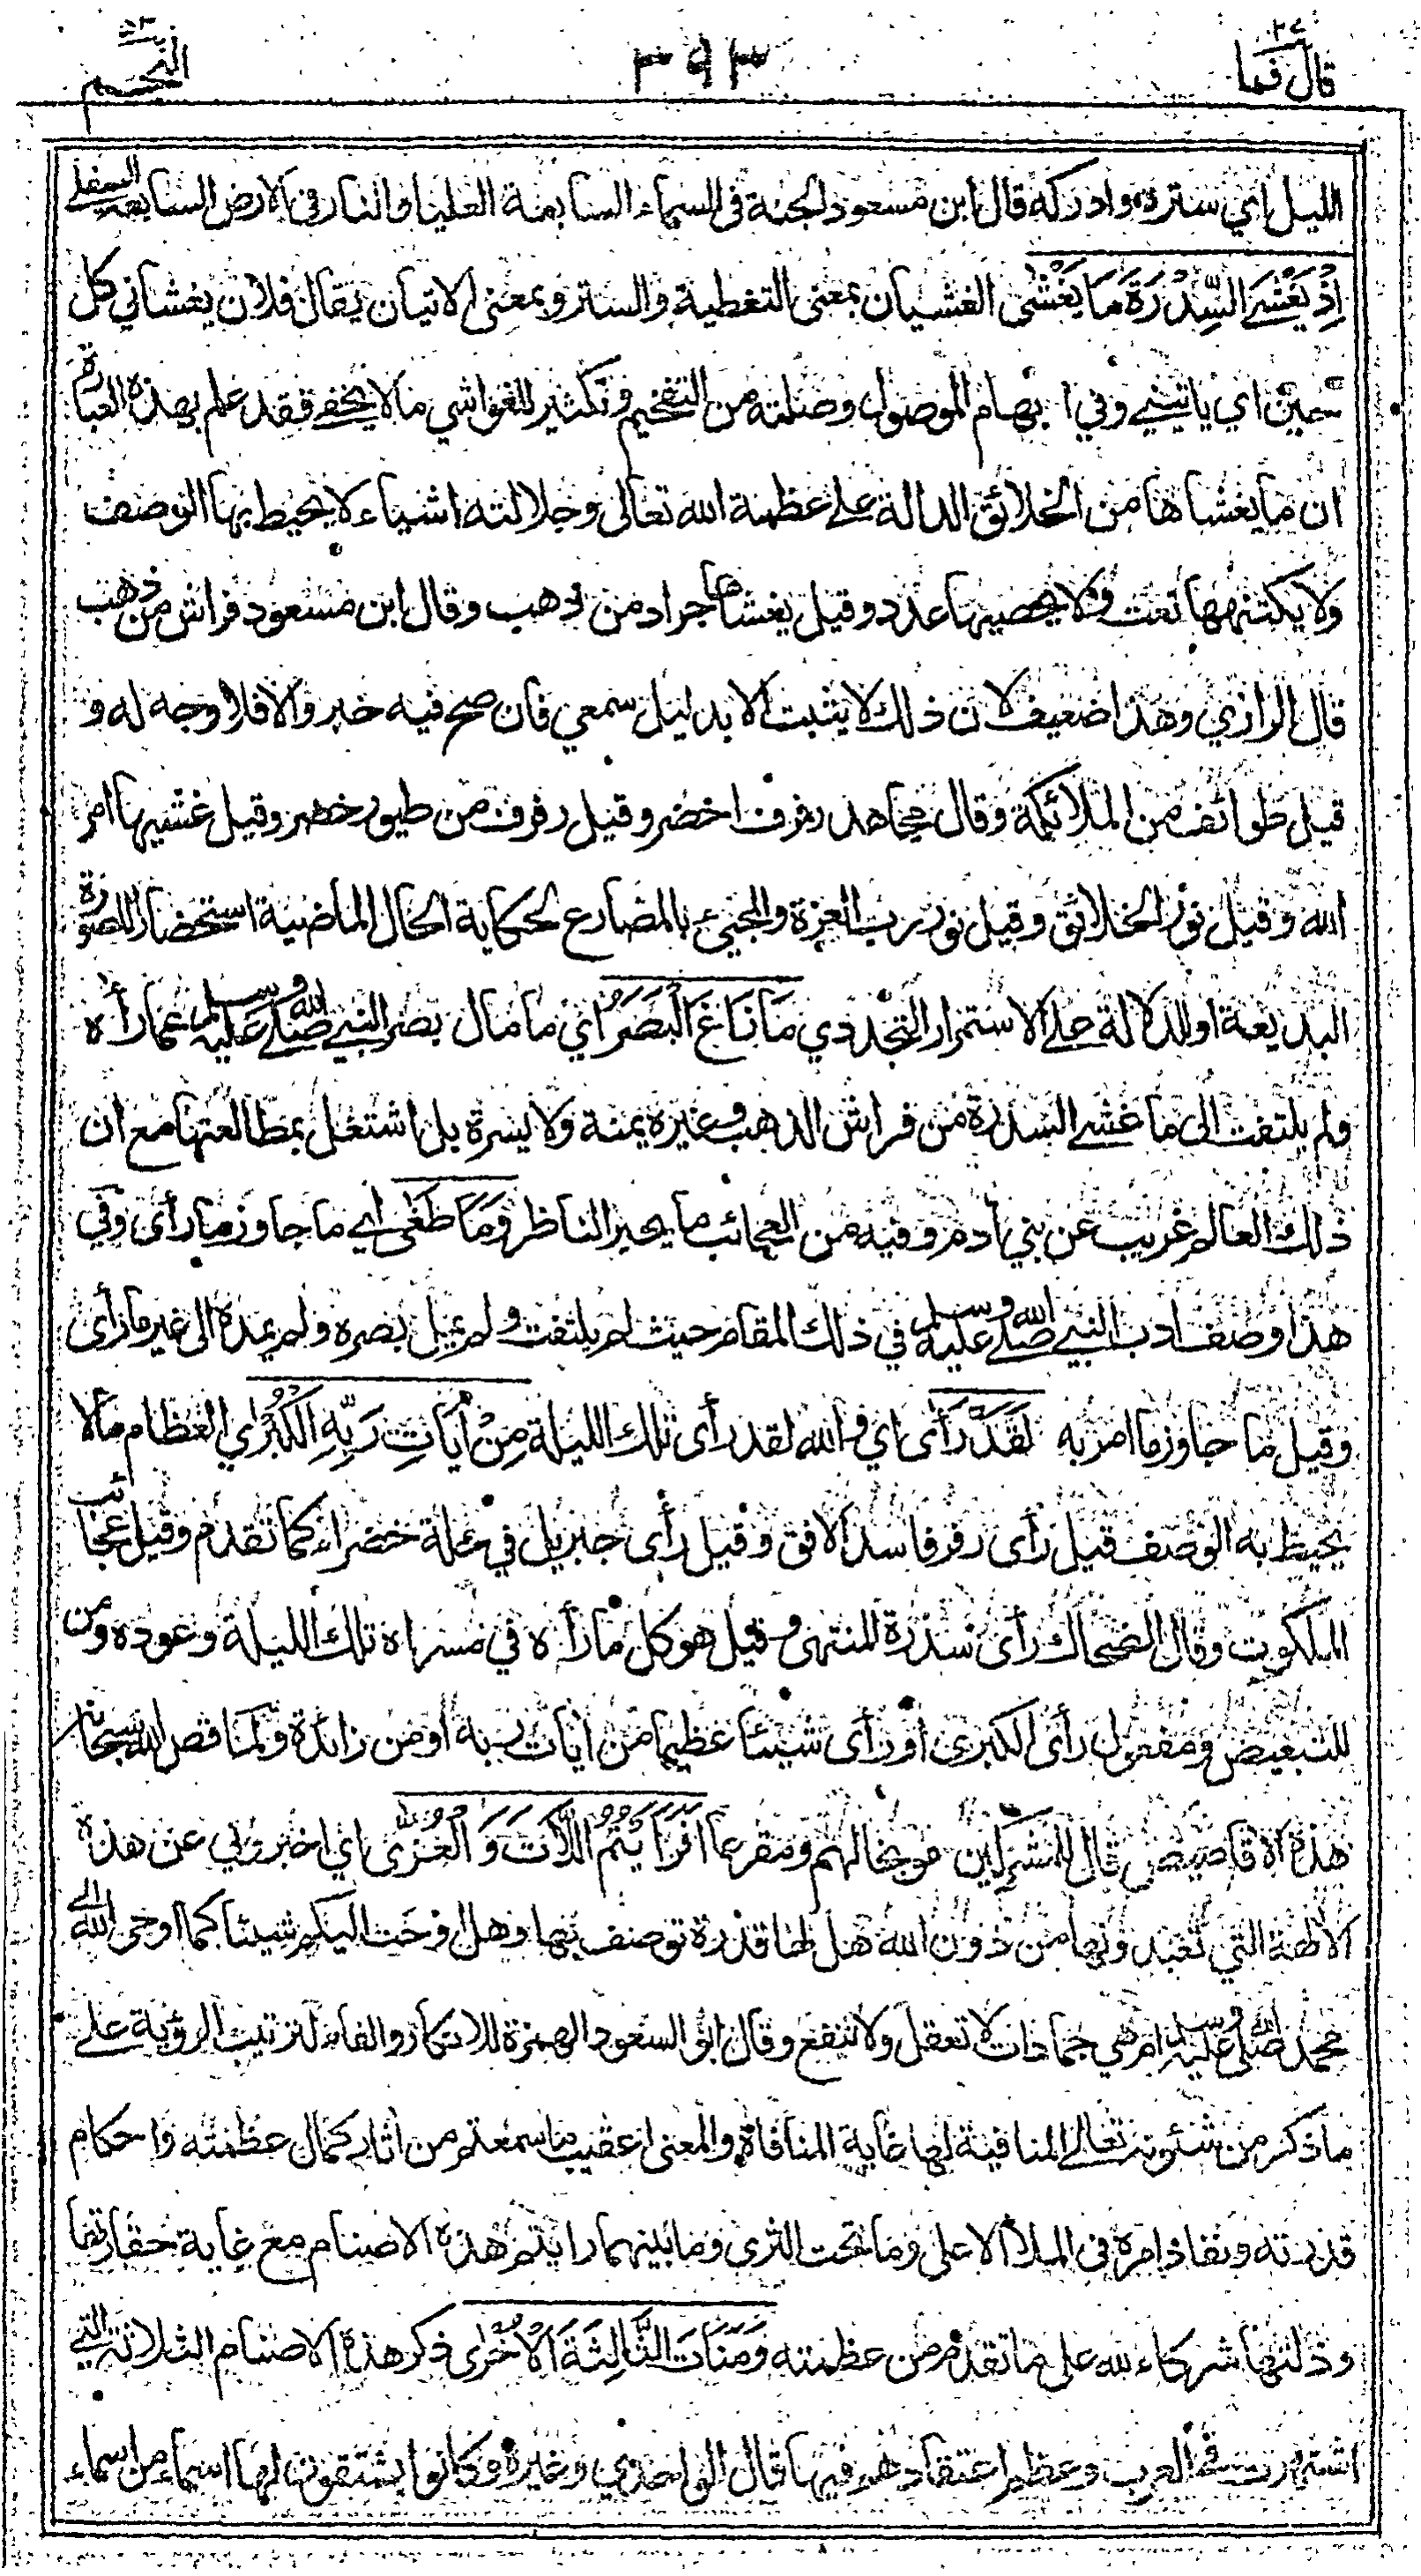 قال فما ٢٧
٣٩٣
النجم ٥٣
الليل اي ستره وادركه قال ابن مسعود الجنة في السماء السابعة العليا والنار في الارض السابعة السفلى
اِذْ يَغْشَى السِّدْرَةَ مَا يَغْشٰى الغشيان بمعنى التغطية والستر وبمعنى الاتيان يقال فلان يغشاني كل
حين اي ياتيني وفي ابهام الموصول وصلته من التفخيم وتكثير للغواشي مالا يخفى فقد علم بهذه العبارة
ان ما يغشاها من الخلائق الدالة على عظمة الله تعالى وجلالته اشياء لا يحيط بها الوصف
ولا يكتنهها نعت ولا يحصيها عدد وقيل يغشاها جراد من ذهب وقال ابن مسعود فراش من ذهب
قال الرازي وهذا ضعيف لان ذلك لا يثبت الا بدليل سمعي فان صح فيه خبر والا فلا وجه له و
قيل طوائف من الملائكة وقال مجاهد رفرف اخضر وقيل رفرف من طيور خضر وقيل غشيها امر
الله وقيل نور الخلائق وقيل نور رب العزة والمجيء بالمضارع لحكاية الحال الماضية استحضارا للصورة
البديعة او للدلالة على الاستمرار التجددي مَا زَاغَ الْبَصَرُ اي ما مال بصر النبي صلى الله عليه وسلم عما رأه
ولم يلتفت الى ما غشى السدرة من فراش الذهب وغيره يمنة ولا يسرة بل اشتغل بمطالعتها مع ان
ذلك العالم غريب عن بني أدم وفيه من العجائب ما يحير الناظر وَمَا طَغٰى اي ما جاوز ما رأى وفي
هذا وصف ادب النبي صلى الله عليه وسلم في ذلك المقام حيث لم يلتفت ولم يمل بصره ولم يمده الى غير ما رأى
وقيل ما جاوز ما امر به لَقَدْ رَأٰى اي والله لقد رأى تلك الليلة مِنْ أيَاتِ رَبِّهِ الْكُبْرٰى العظام مالا
يحيط به الوصف قيل رأى رفرفا سد الافق وقيل رأى جبريل في حلة خضراء كما تقدم وقيل عجائب
الملكوت وقال الضحاك رأى سدرة المنتهى وقيل هو كل ما رأه في مسراه تلك الليلة وعوده ومن
للتبعيض ومفعول رأى الكبرى او رأى شيئا عظيما من أيات ربه او من زائدة ولما قص الله سبحانه
هذه الاقاصيص قال للمشركين موبخا لهم ومقرعا اَفَرَأَيْتُمُ اللَّاتَ وَالْعُزّٰى اي اخبروني عن هذه
الألهة التي تعبدونها من دون الله هل لها قدرة توصف بها وهل اوحت اليكم شيئا كما اوحى الله الى
محمد صلى الله عليه وسلم ام هي جمادات لا تعقل ولا تنفع وقال ابو السعود الهمزة للانكار والفاء لترتيب الرؤية على
ما ذكر من شئونه تعالى المنافية لها غاية المنافاة والمعنى اعقيب ما سمعتم من أثار كمال عظمته واحكام
قدرته ونفاذ امره في الملأ الاعلى وما تحت الثرى وما بينهما رايتم هذه الاصنام مع غاية حقارتها
وذلتها شركاء لله على ما تقدم من عظمته وَمَنَاتَ الثَّالِثَةَ الْاُخْرٰى ذكر هذه الاصنام الثلاثة التي
اشتهرت في العرب وعظم اعتقادهم فيها قال الواحدي وغيره وكانوا يشتقون لها اسماء من اسماء